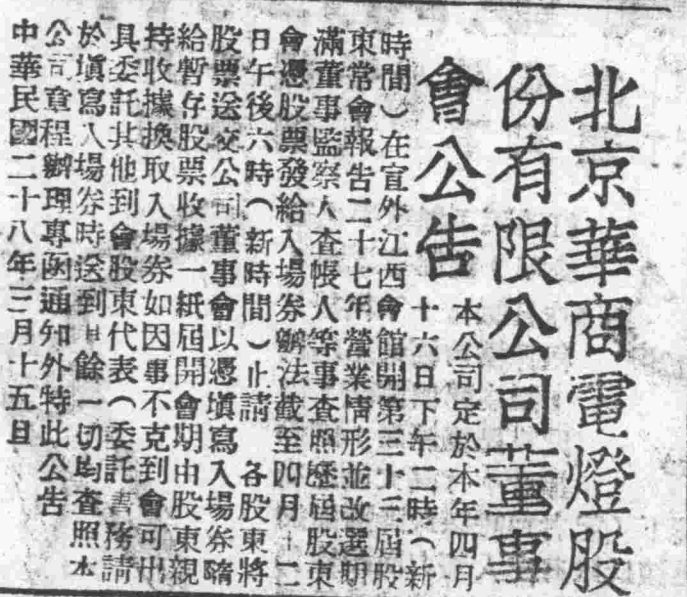 北京華商電燈股
份有限公司董事
會公告
本公司定於本年四月
十六日下午二時（新
時間）在宣外江西會館開第三十三屆股
東常會報告二十七年營業情形並改選期
滿董事監察人查帳人等事查照歷屆股東
會憑股票發給入場券辦法截至四月十二
日午後六時（新時間）止請　各股東將
股票送交公司董事會以憑填寫入場券隨
給暫存股票收據一紙屆開會期由股東親
持收據換取入場券如因事不克到會可出
具委託其他到會股東代表（委託書務請
於填寫入場券時送到）餘一切均查照本
公司章程辦理專函通知外特此公告
中華民國二十八年三月十五日